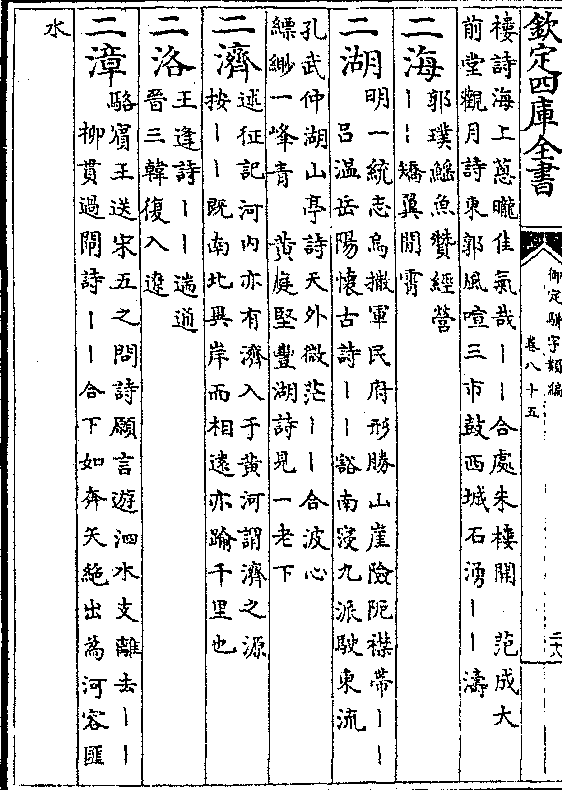 欽定四庫全書
御定駢字類編
卷八十五
二十八
樓詩海上蔥曨佳氣哉丨丨合處朱樓開 范成大
前堂觀月詩東郭風喧三市鼓西城石湧丨丨濤
二海
郭璞鰩魚贊經營
丨丨矯翼閒霄
二湖
明一統志烏撒軍民府形勝山崖險阨襟帶丨丨
吕溫岳陽懷古詩丨丨豁南寖九派駛東流
孔武仲湖山亭詩天外微茫丨丨合波心
縹緲一峰青 黄庭堅豐湖詩見一老下
二濟
述征記河内亦有濟入于黄河謂濟之源
按丨丨既南北異岸而相逺亦踰千里也
二洛
王逢詩丨丨遄通
晉三韓復入遼
二漳
駱賔王送宋五之問詩願言遊泗水支離去丨丨
栁貫過閘詩丨丨合下如奔天絶出為河容匯
水